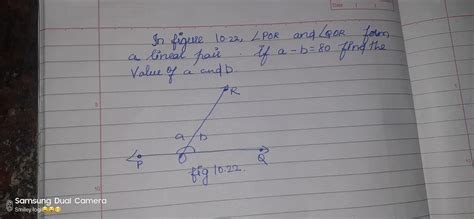 Date
In figure 10.22, ∠POR and ∠QOR form
a lineal pair. If a - b = 80 find the
Value of a and b.
R
a b
P O Q
fig 10.22.
Samsung Dual Camera
Smiley.logi😁😁😁